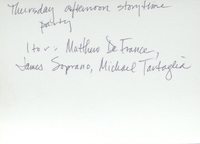 Thursday afternoon storytime
party
l to r: Matthew DeFrance,
James Soprano, Michael Tartaglia